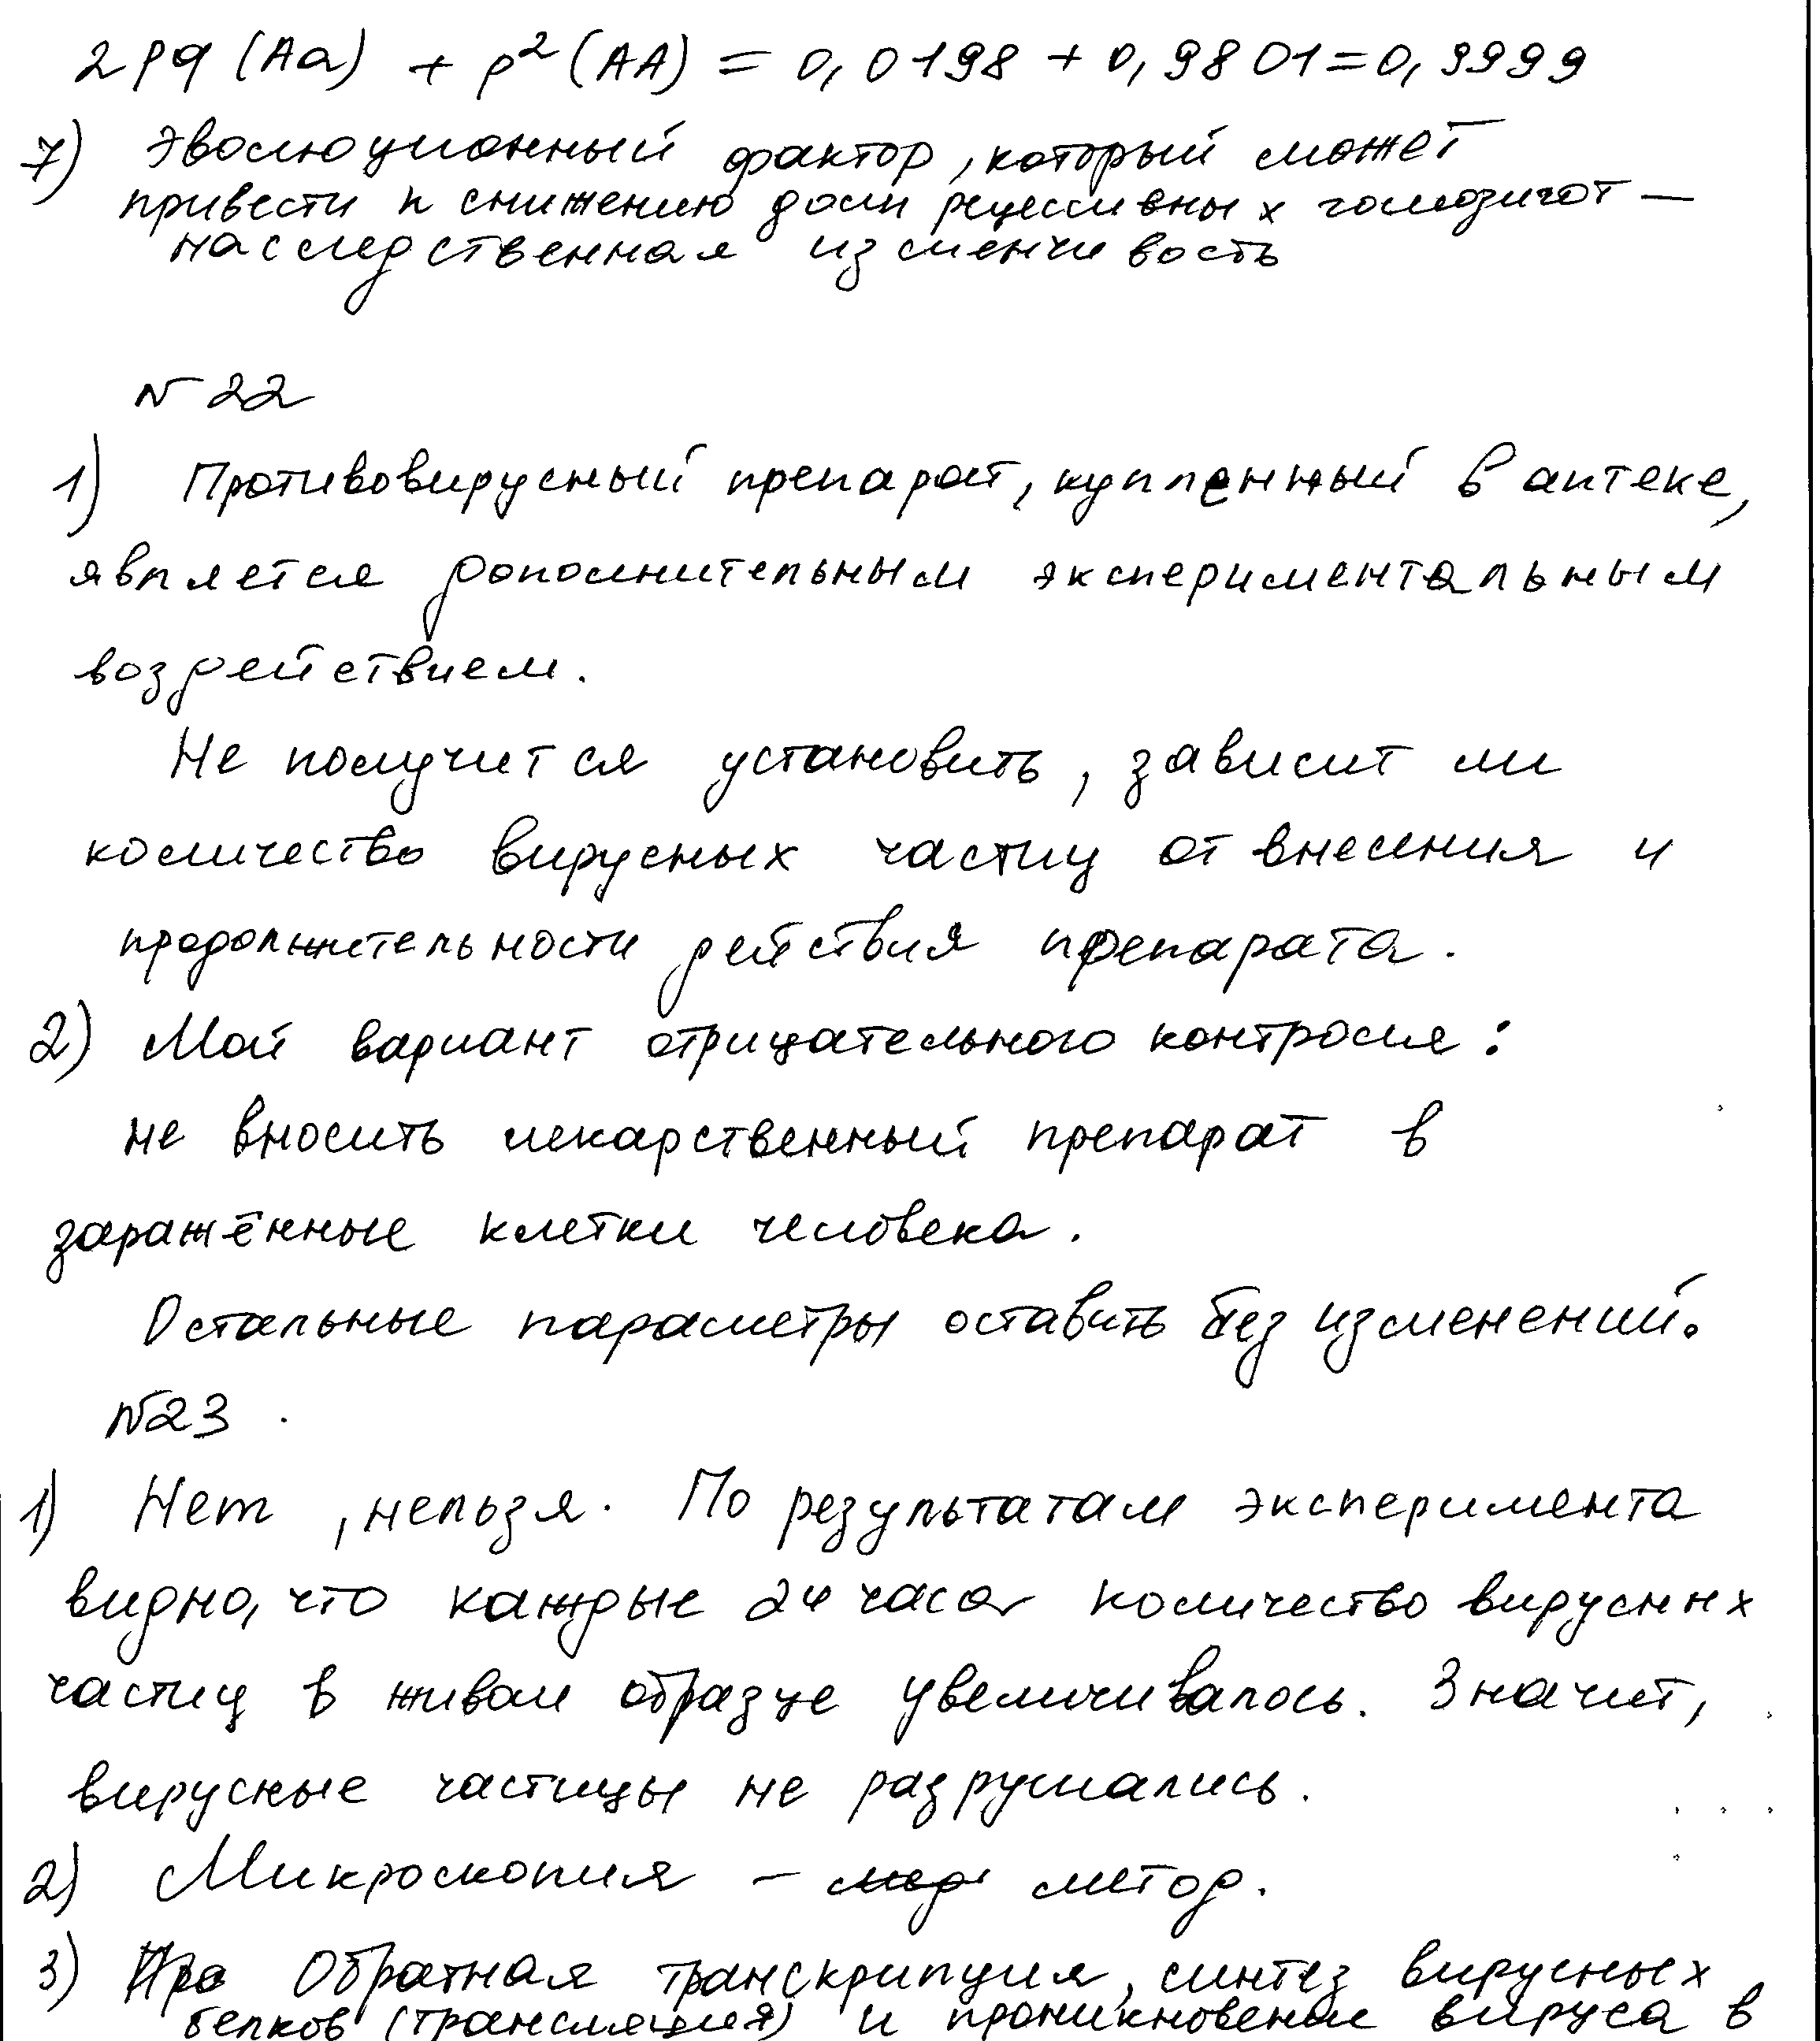 2pq (Aa) + p² (AA) = 0,0198 + 0,9801 = 0,9999
7) Эволюционный фактор, который может
привести к снижению доли рецессивных гомозигот —
наследственная изменчивость
№ 22
1) Противовирусный препарат, купленный в аптеке,
является дополнительным экспериментальным
воздействием.
Не получится установить, зависит ли
количество вирусных частиц от внесения и
продолжительности действия препарата.
2) Мой вариант отрицательного контроля:
не вносить лекарственный препарат в
заражённые клетки человека.
Остальные параметры оставить без изменений.
№23
1) Нет, нельзя. По результатам эксперимента
видно, что каждые 24 часа количество вирусных
частиц в живом образце увеличивалось. Значит,
вирусные частицы не разрушались.
2) Микроскопия – метод.
3) Обратная транскрипция, синтез вирусных
белков (трансляция) и проникновение вируса в